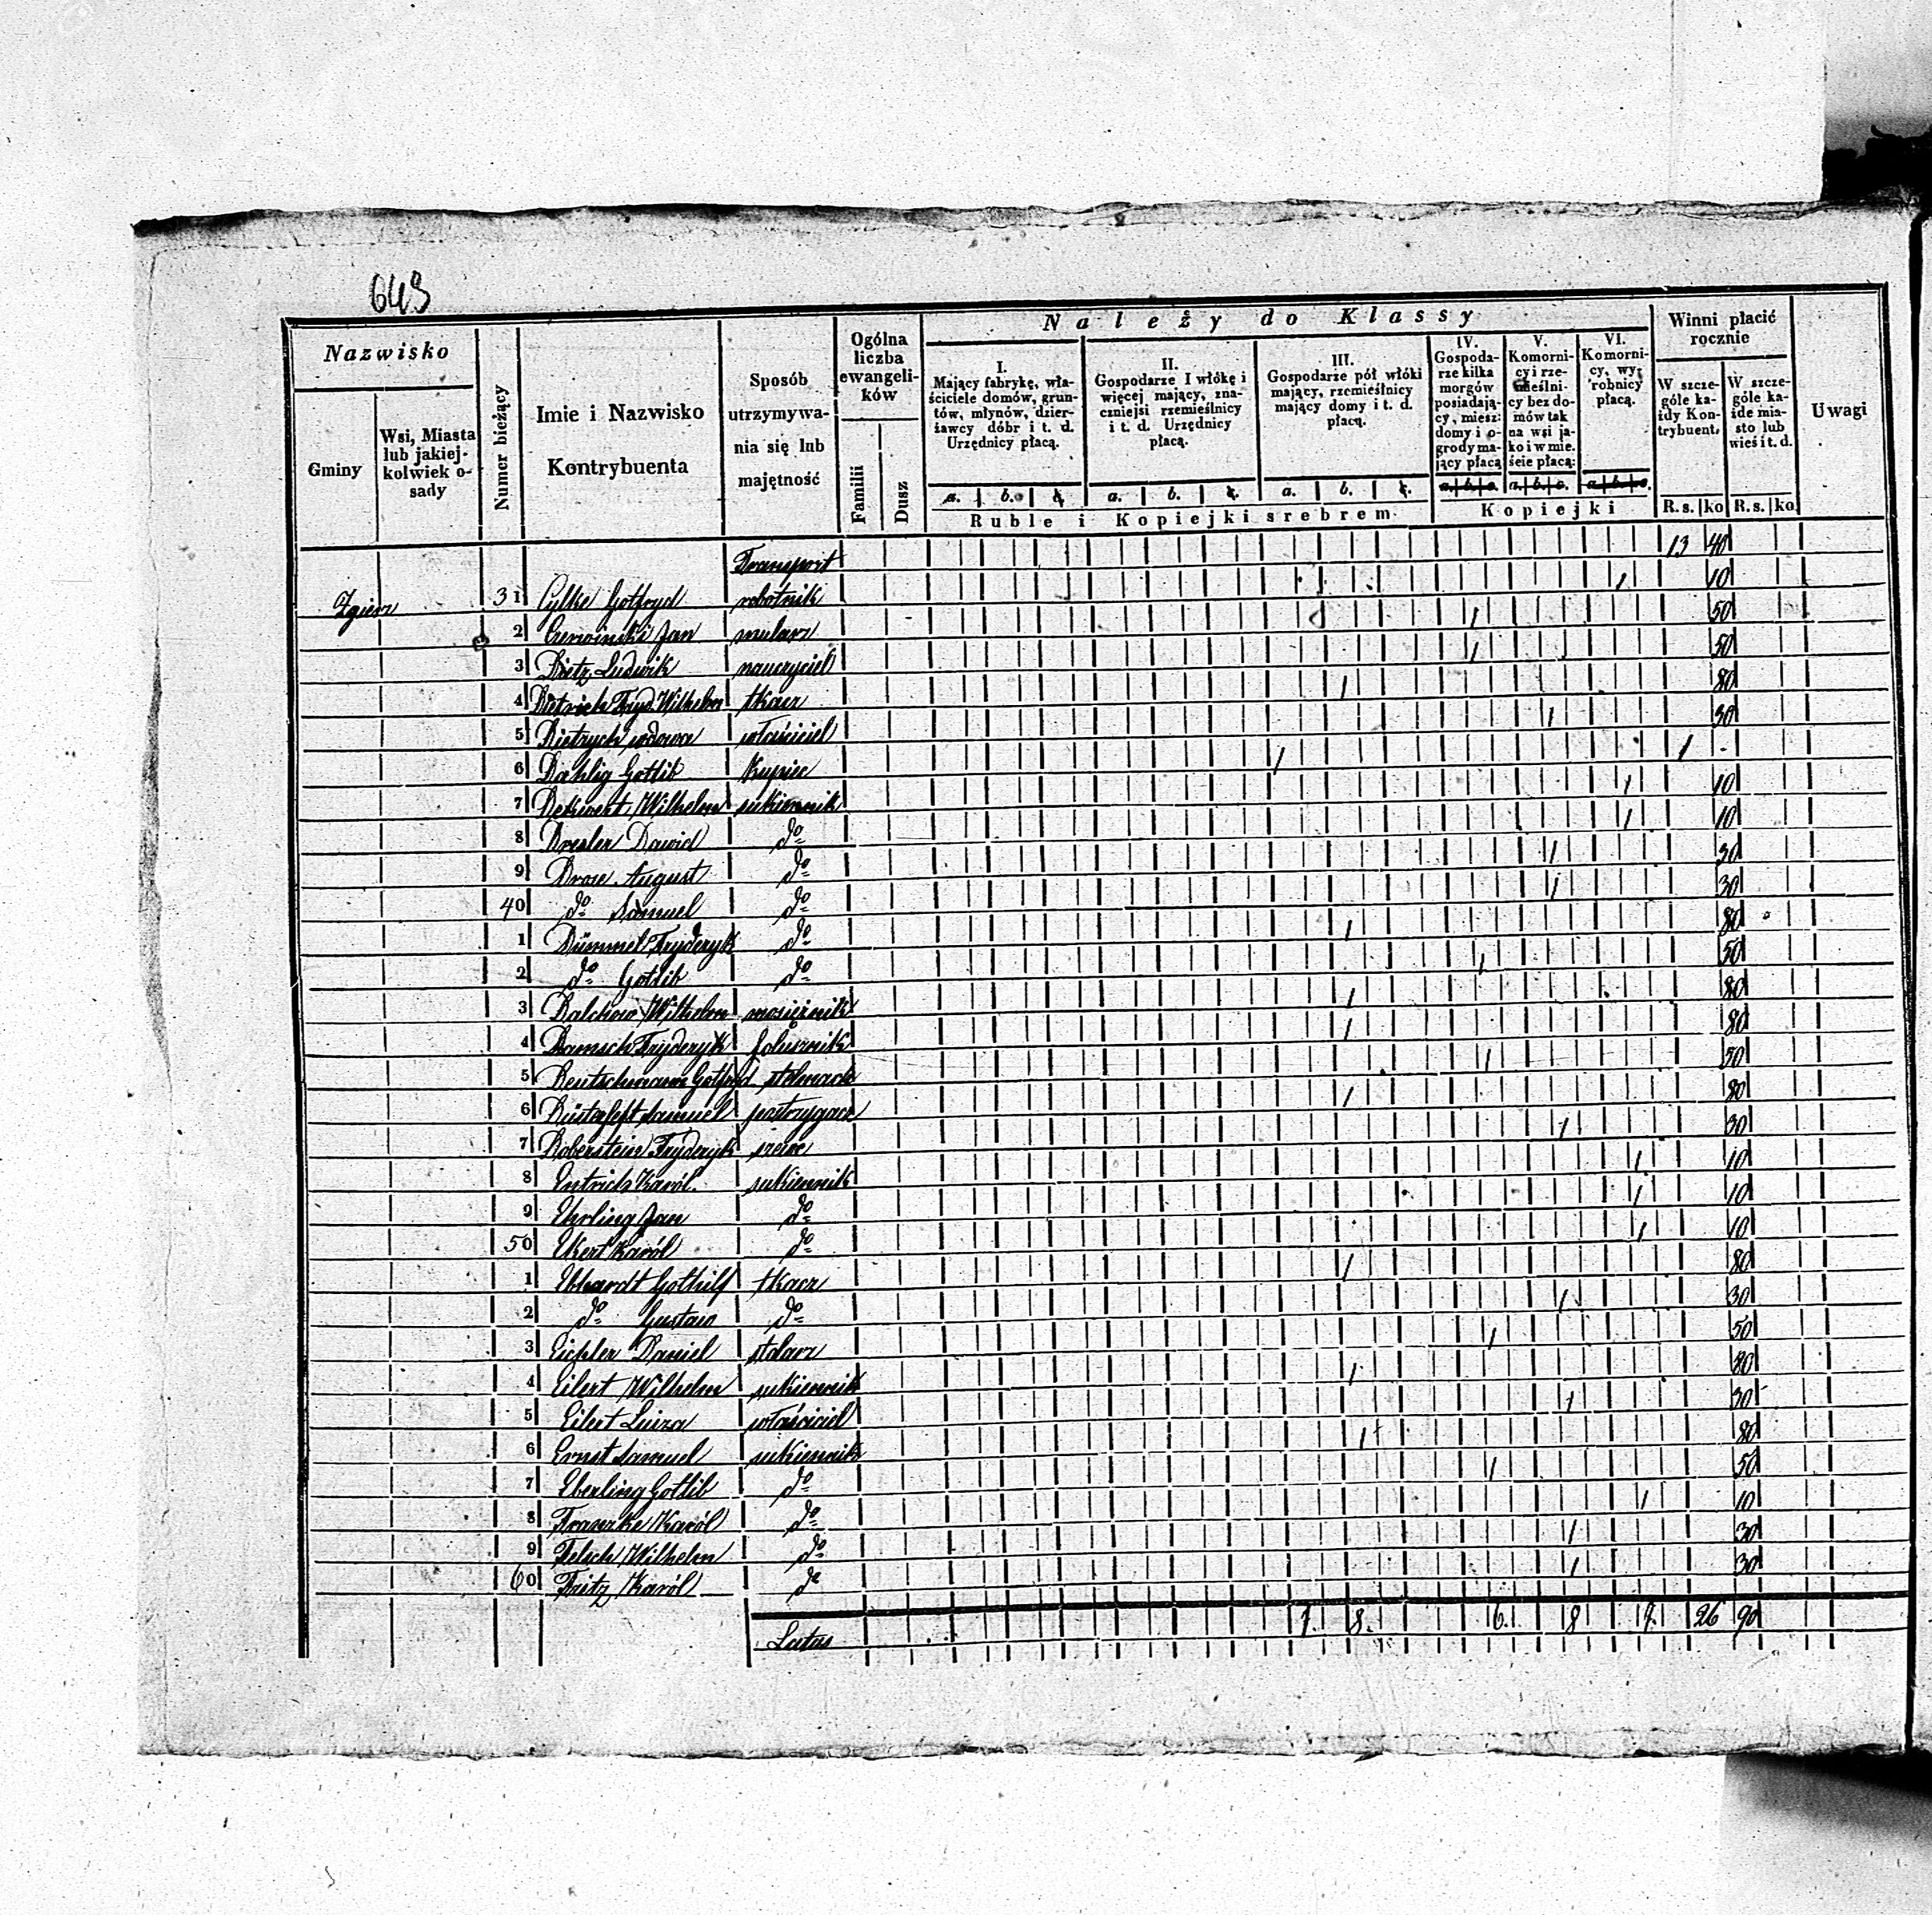 643
Nazwisko
Gminy
Wsi, Miasta
lub jakiej-
kolwiek o-
sady
Numer bieżący
Imie i Nazwisko
Kontrybuenta
Sposób
utrzymywa-
nia się lub
majętność
Ogólna
liczba
ewangeli-
ków
Familii
Dusz
Należy do Klassy
I.
Mający fabrykę, wła-
ściciele domów, grun-
tów, młynów, dzier-
żawcy dóbr i t. d.
Urzędnicy płacą.
a. b. c.
II.
Gospodarze I włókę i
więcej mający, zna-
czniejsi rzemieślnicy
i t. d. Urzędnicy
płacą.
a. b. c.
III.
Gospodarze pół włóki
mający, rzemieślnicy
mający domy i t. d.
płacą.
a. b. c.
Ruble i Kopiejki srebrem.
IV.
Gospoda-
rze kilka
morgów
posiadają-
cy, miesz:
domy i o-
grody ma-
jący płacą
a. b. c.
V.
Komorni-
cy i rze-
mieślni-
cy bez do-
mów tak
na wsi ja-
ko i w mie-
ście płacą:
a. b. c.
VI.
Komorni-
cy, wyr
robnicy
płacą.
a. b. c.
Kopiejki
Winni płacić
rocznie
W szcze-
góle ka-
żdy Kon-
trybuent.
R. s. ko
W szcze-
góle ka-
żde mia-
sto lub
wieś i t. d.
R. s. ko.
Uwagi
Transport 13 40
Zgierz 31 Cylke Gotfryd robotnik 1 10
2 Czerwinski Jan mularz 1 50
3 Dietz Ludwik nauczyciel 1 50
4 Dietrich Fryd. Wilhelm tkacz 1 80
5 Dietrych wdowa właściciel 1 30
6 Dahlig Gotlib Kupiec 1 1 -
7 Wilhelm sukiennik 1 10
8 Dresler Dawid do 1 10
9 August do 1 30
40 do Samuel do 1 30
1 Dümmel Fryderyk do 1 80
2 do Gotlib do 1 50
3 Dalchow Wilhelm mosiężnik 1 80
4 Damsch Fryderyk folusznik 1 80
5 Deutschmann Gotfryd stelmach 1 50
6 Samuel postrzygacz 1 80
7 Doberstein Fryderyk szewc 1 30
8 Entrich Karól sukiennik 1 10
9 Ehrling Jan do 1 10
50 Ekert Karól do 1 10
1 Ebhardt Gothilf tkacz 1 80
2 do Gustaw do 1 30
3 Eichler Daniel stolarz 1 50
4 Eilert Wilhelm sukiennik 1 80
5 Eilert Luiza właściciel 1 30
6 Ernst Samuel sukiennik 1 80
7 Eberling Gotlib do 1 50
8 Franzke Karól do 1 10
9 Felsch Wilhelm do 1 30
60 Fritz Karól do 1 30
Latus 1. 8. 6. 8 7. 26 90